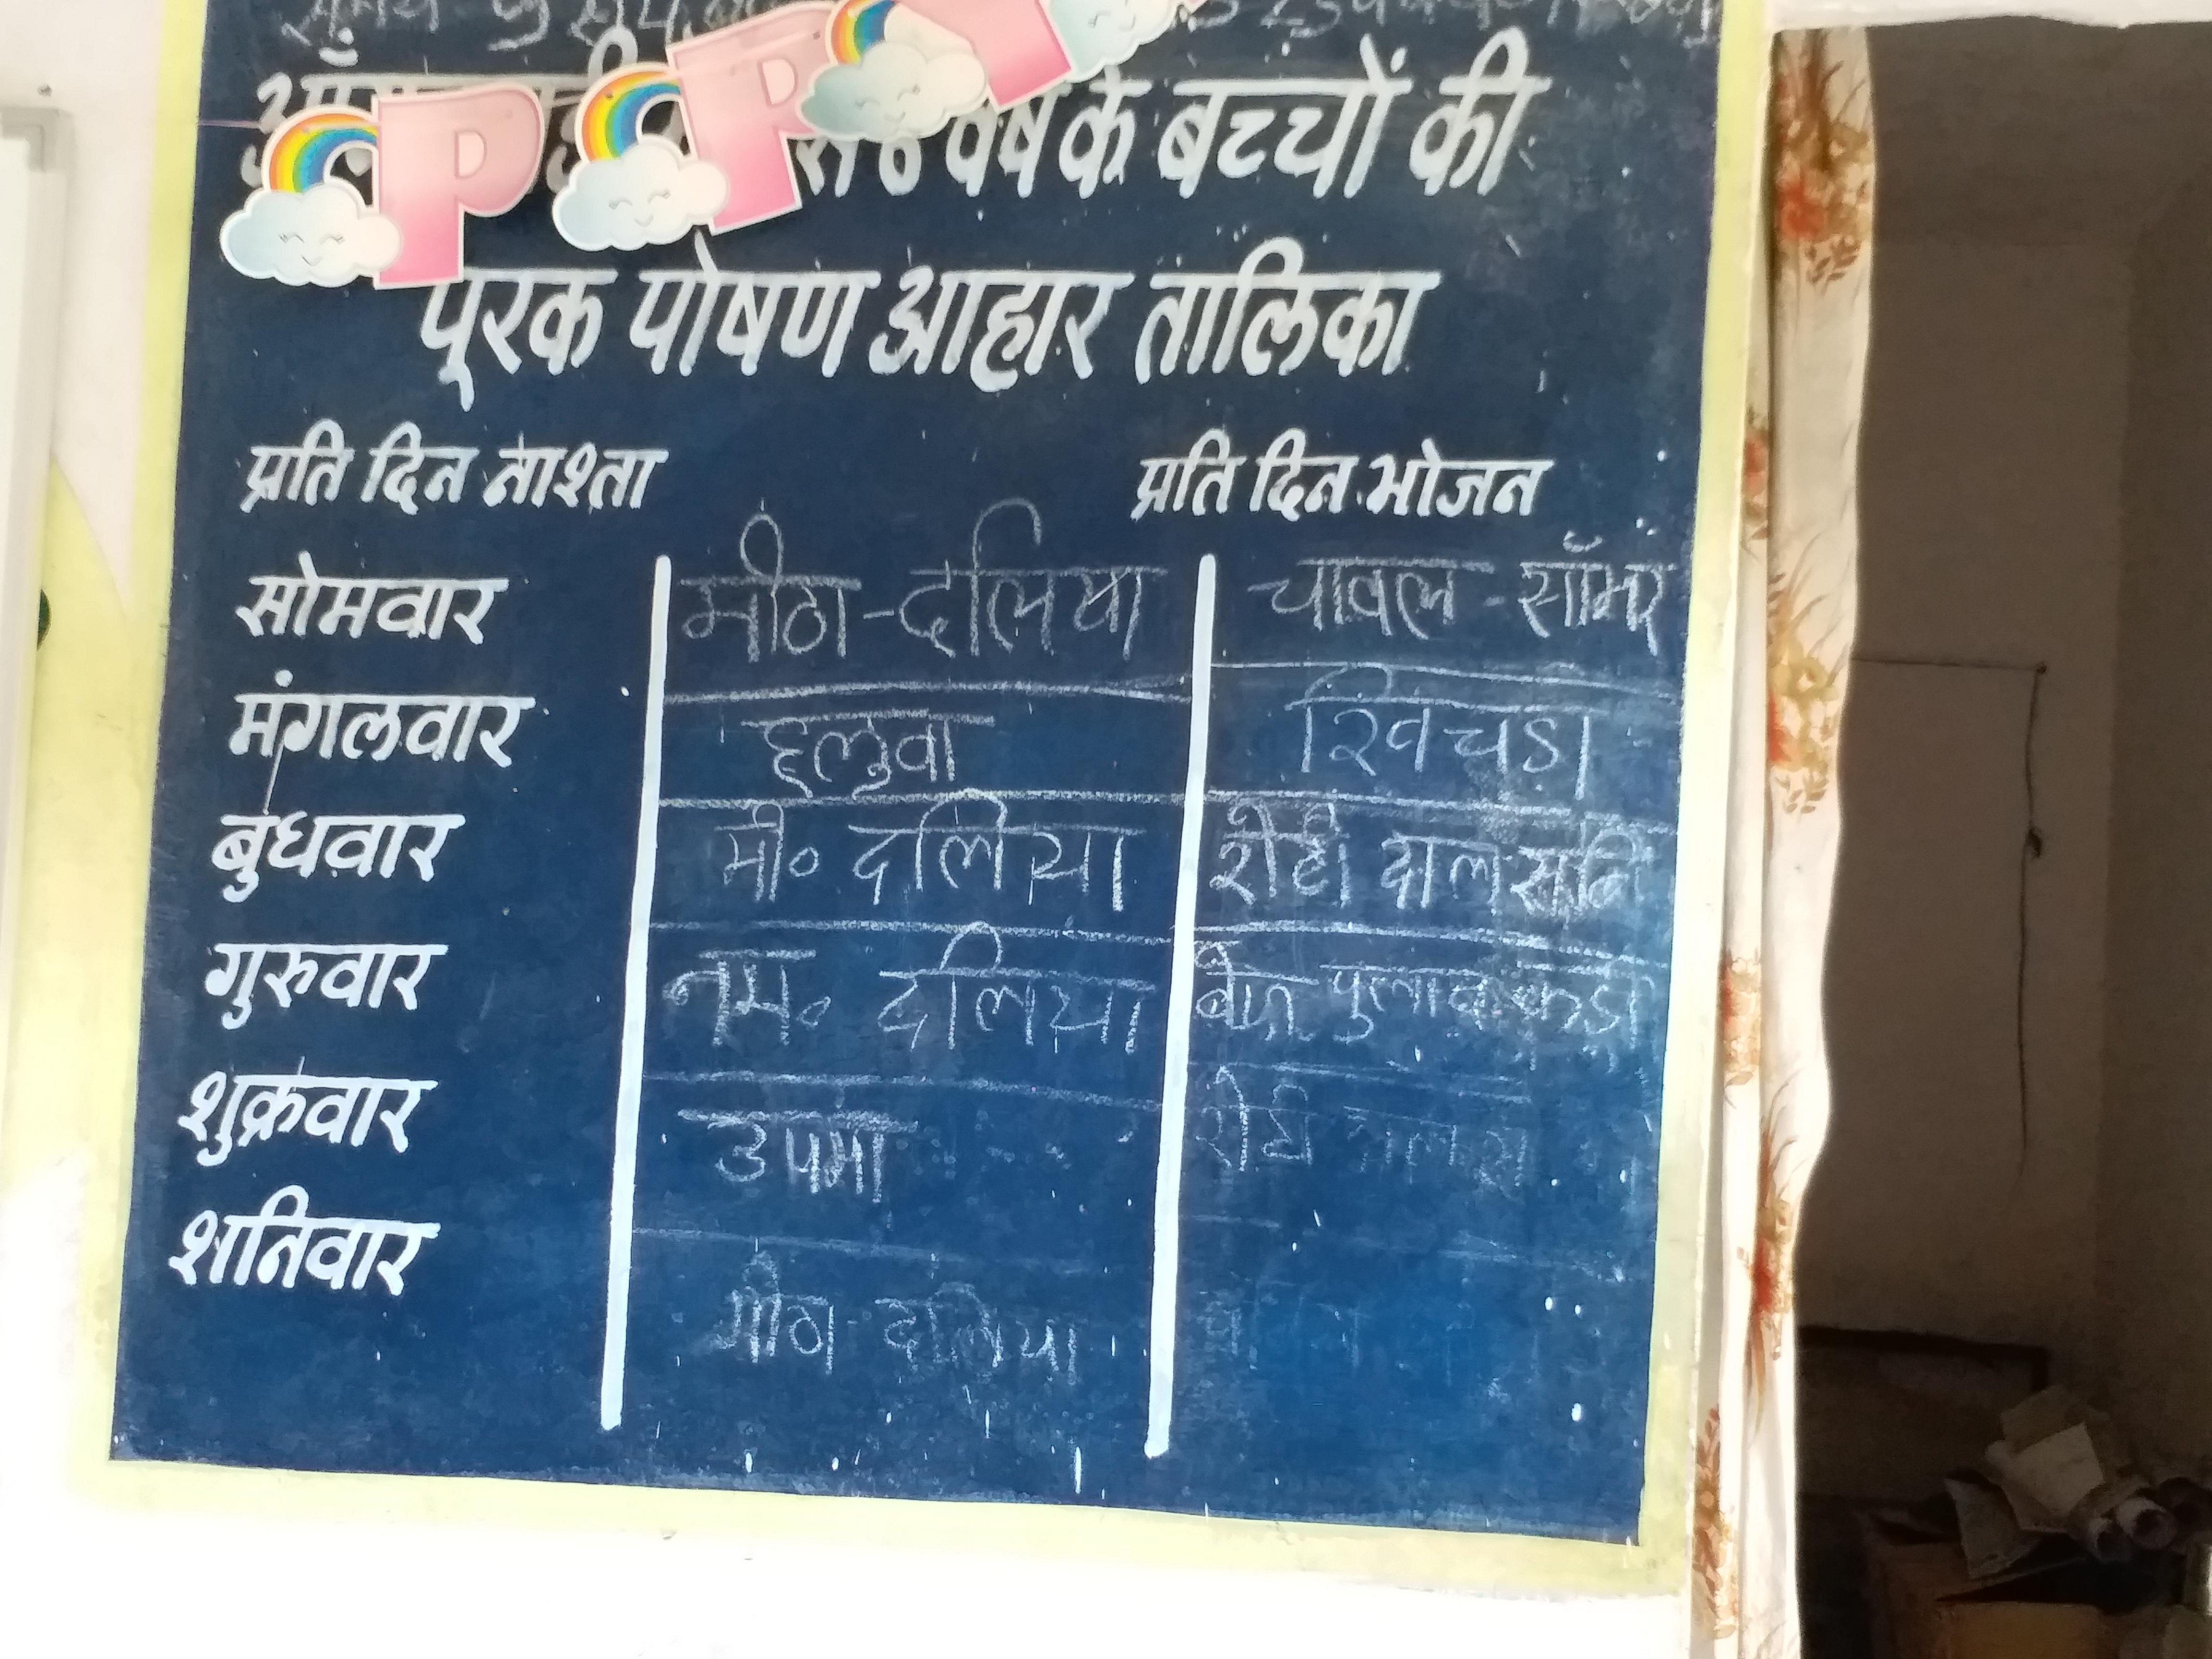 वर्ष के बच्चों की
पूरक पोषण आहार तालिका
प्रति दिन नाश्ता प्रति दिन भोजन
सोमवार मीठा - दलिया चावल - सॉंभर
मंगलवार हलुवा खिचड़ी
बुधवार मी॰ दलिया रोटी दाल सब्जि
गुरुवार नम॰ दलिया पुलाव कड़ी
शुक्रवार उपमा रोटी
शनिवार मीठा दलिया
P P